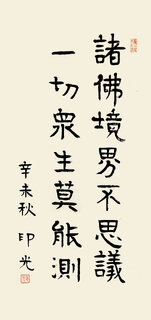 諸佛境界不思議
一切衆生莫能測
辛未秋 印光